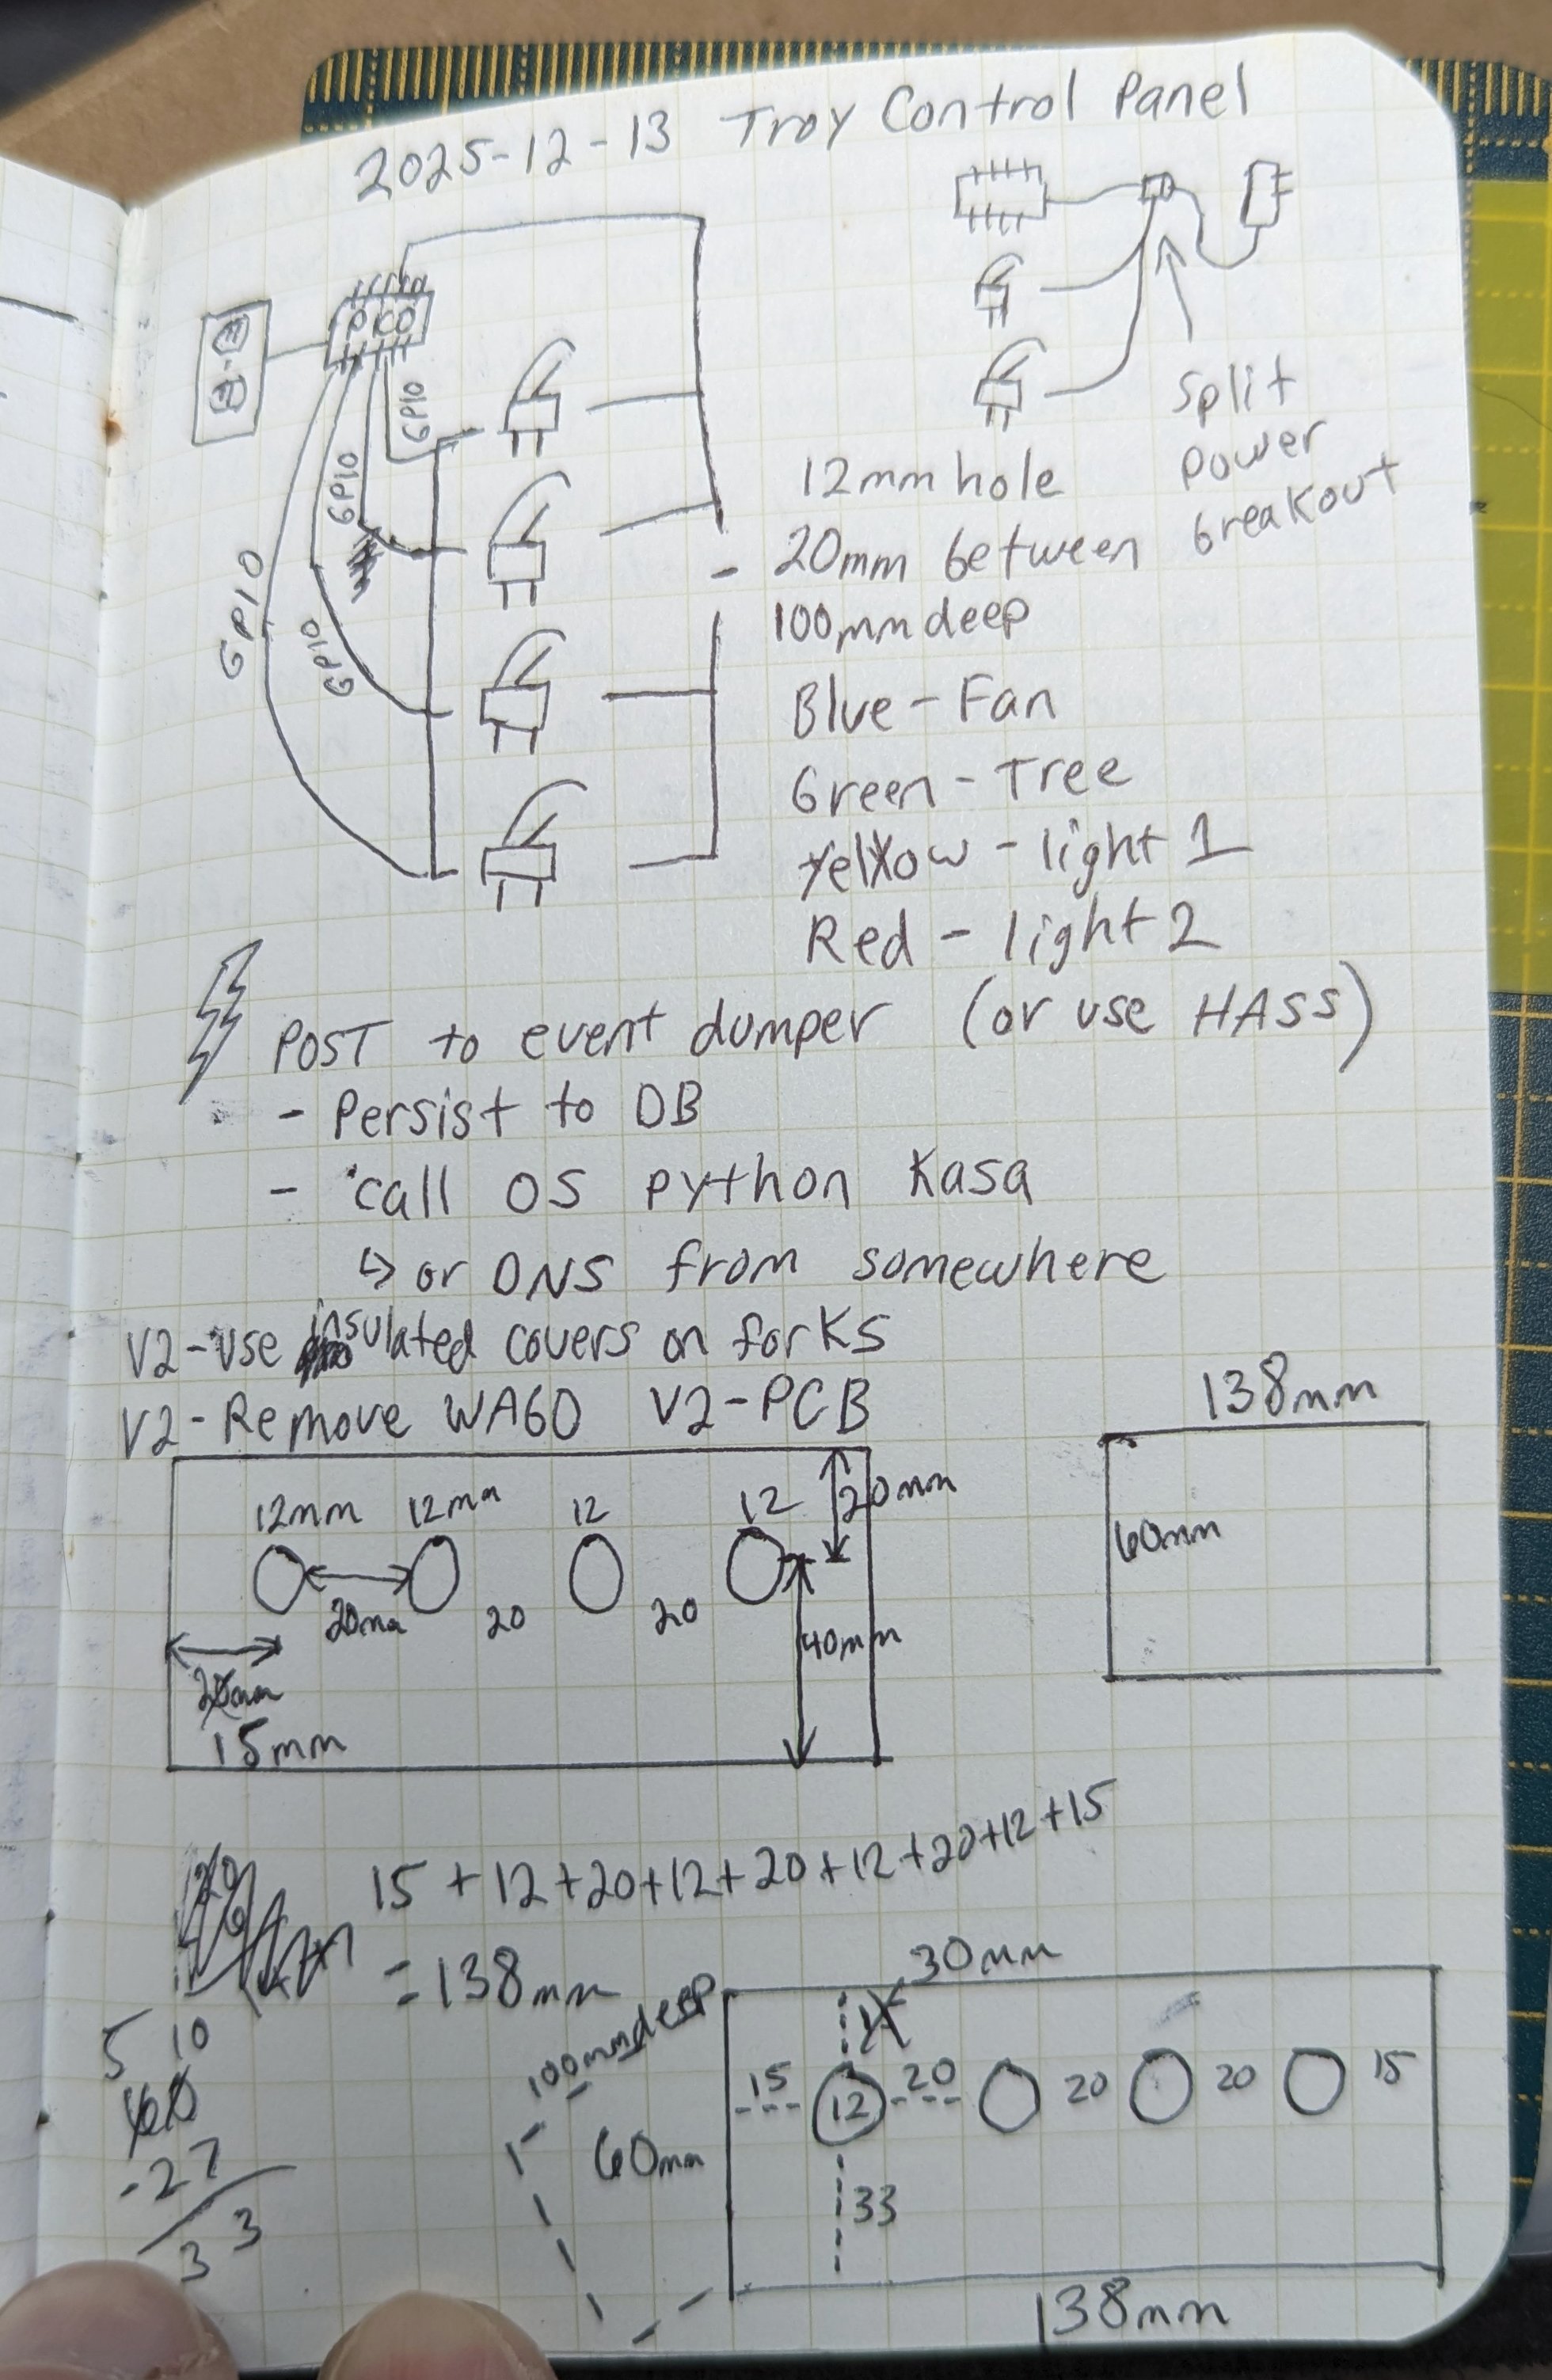 2025-12-13 Troy Control Panel
PICO
GPIO
GPIO
GPIO
GPIO
Split
power
breakout
12mm hole
- 20mm between
100mm deep
Blue - Fan
Green - Tree
Yellow - light 1
Red - light 2
POST to event dumper (or use HASS)
- Persist to DB
- call OS python Kasa
↳ or DNS from somewhere
V2-Use insulated covers on forks
V2-Remove WAGO V2-PCB
138mm
60mm
12mm 12mm 12 12
20mm
20mm 20 20
40mm
20mm
15mm
15+12+20+12+20+12+20+12+15
=138mm
5 10
60
-27
33
100mm deep
30mm
15 12 20 20 20 15
60mm
33
138mm